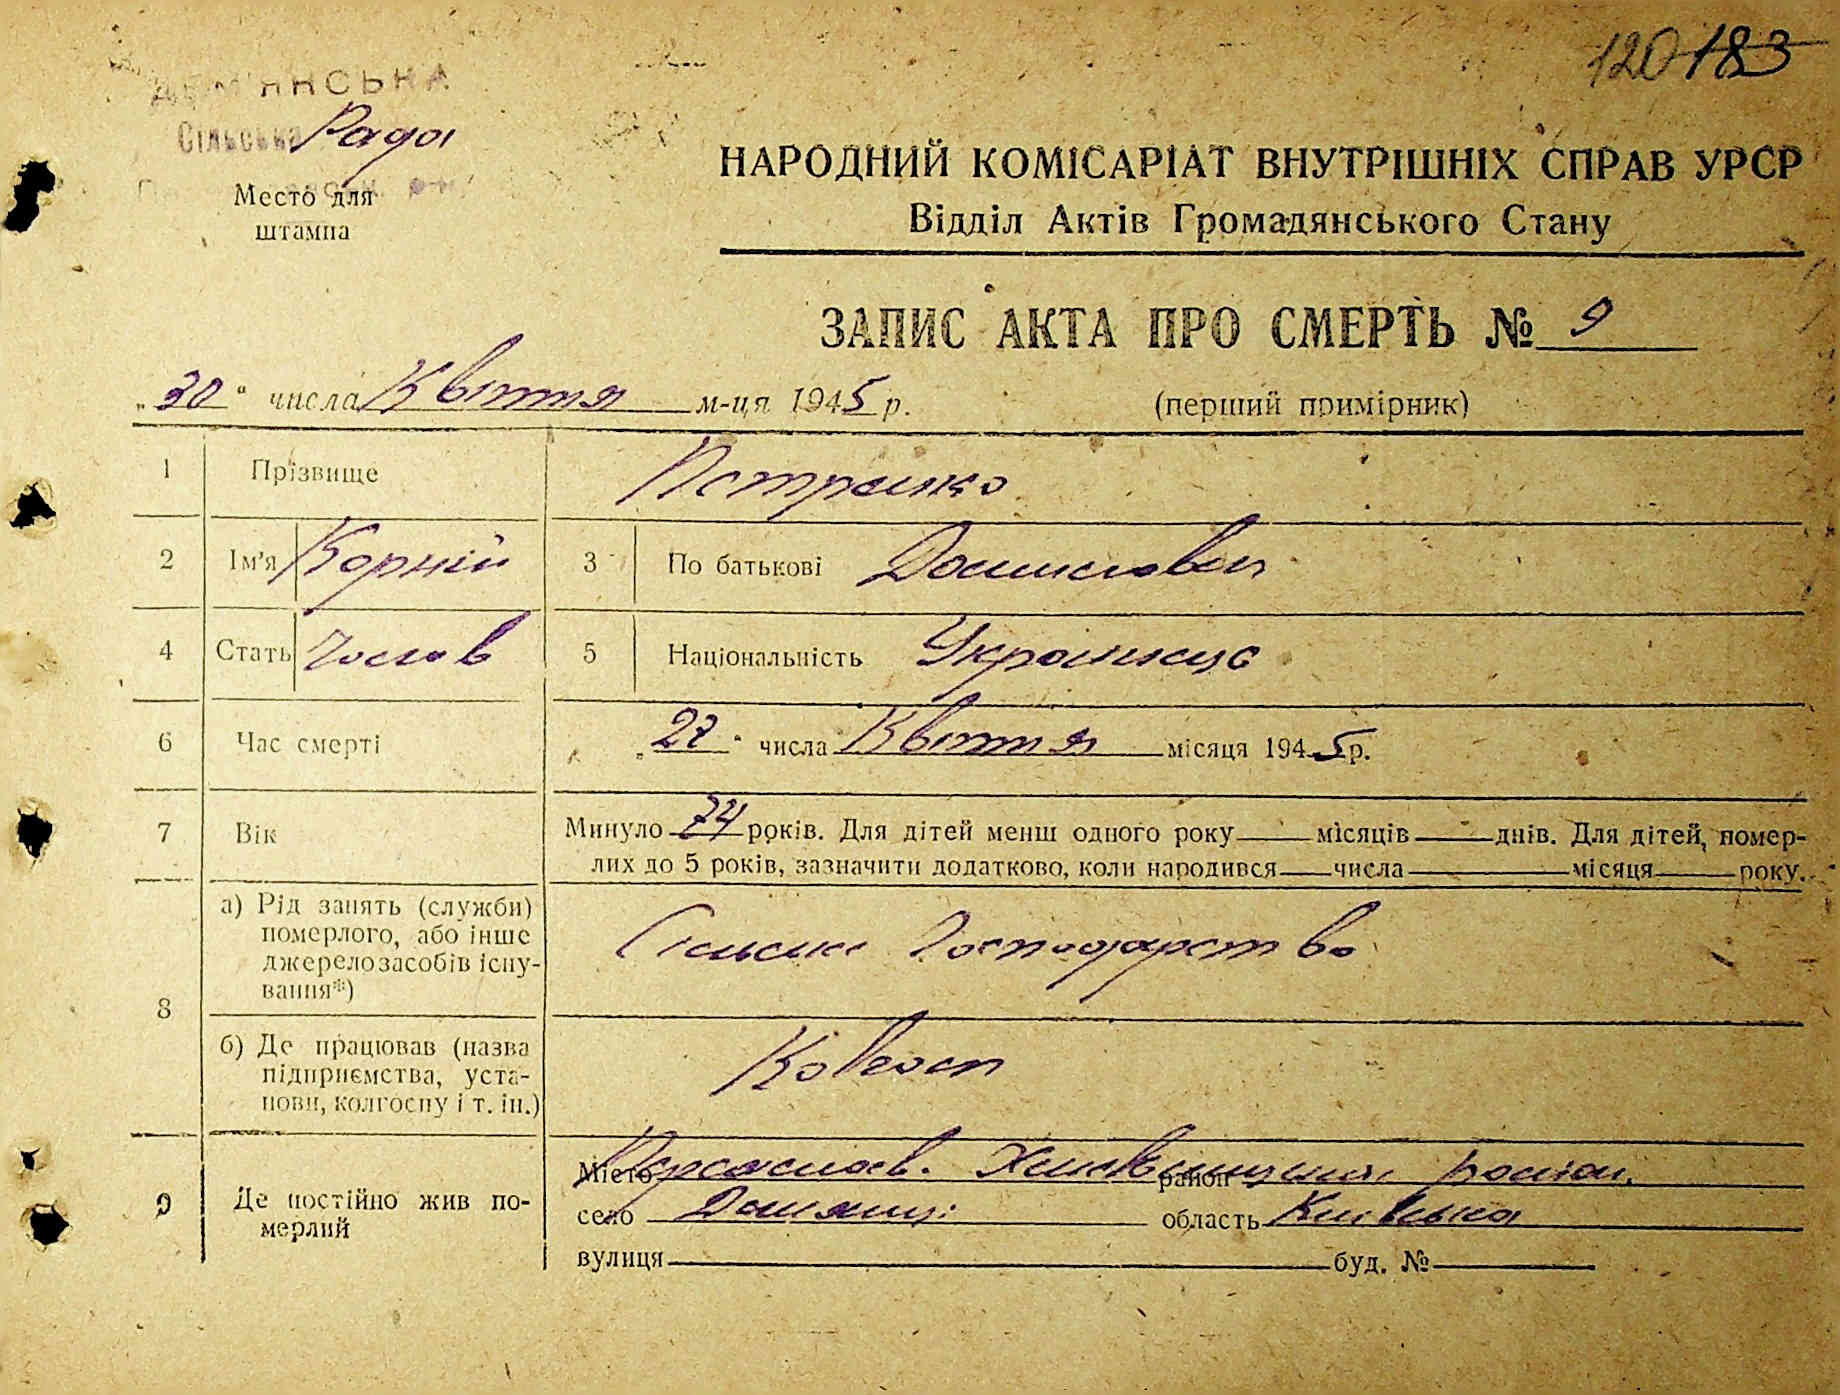 120 183
ДЕМ'ЯНСЬКА
Сільська Рада
Место для
штампа
НАРОДНИЙ КОМІСАРІАТ ВНУТРІШНІХ СПРАВ УРСР
Відділ Актів Громадянського Стану
ЗАПИС АКТА ПРО СМЕРТЬ № 9
„30“ числа Квітня м-ця 1945 р.
(перший примірник)
1 Прізвище
2 Ім'я Корній 3 По батькові
4 Стать Чолов 5 Національність Українець
6 Час смерті „27“ числа Квітня місяця 1945 р.
7 Вік Минуло 74 років. Для дітей менш одного року місяців днів. Для дітей, помер-
лих до 5 років, зазначити додатково, коли народився числа місяця року.
8 а) Рід занять (служби)
померлого, або інше
джерело засобів існу-
вання*)
Сільське Господарство
б) Де працював (назва
підприємства, уста-
нови, колгоспу і т. ін.)
Колгосп
9 Де постійно жив по-
мерлий
Місто Переяслав. Хмельницький район
село Демянці область Київська
вулиця буд. №